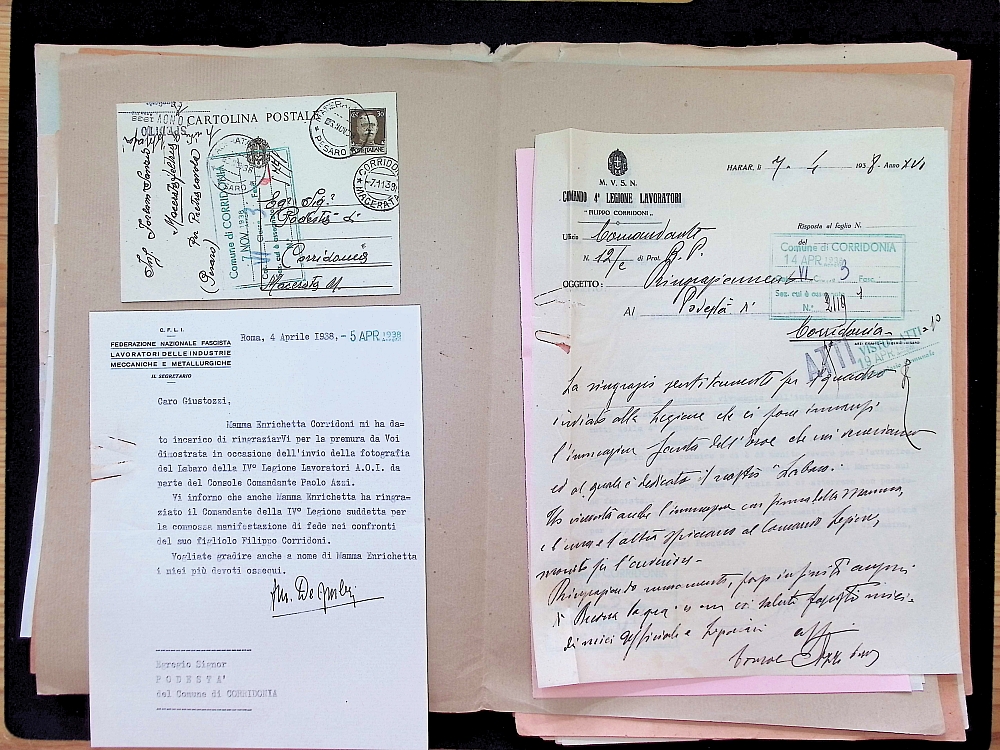 CARTOLINA POSTALE
Ing.
Macerata Feltria
Per Pietracuta
(Pesaro)
Comune di CORRIDONIA
7 NOV. 1938
VI
3
Egr. Sig.
Podestà di
Corridonia
Macerata M.
PESARO
CORRIDONIA
-7.11.38
MACERATA
POSTE ITALIANE
30
C. F. L. I.
FEDERAZIONE NAZIONALE FASCISTA
LAVORATORI DELLE INDUSTRIE
MECCANICHE E METALLURGICHE
IL SEGRETARIO
Roma, 4 Aprile 1938,- 5 APR 1938
Caro Giustozzi,
Mamma Enrichetta Corridoni mi ha da-
to incarico di ringraziarVi per la premura da Voi
dimostrata in occasione dell'invio della fotografia
del Labaro della IVº Legione Lavoratori A.O.I. da
parte del Console Comandante Paolo Azzi.
Vi informo che anche Mamma Enrichetta ha ringra-
ziato il Comandante della IVº Legione suddetta per
la commossa manifestazione di fede nei confronti
del suo figliolo Filippo Corridoni.
Vogliate gradire anche a nome di Mamma Enrichetta
i miei più devoti ossequi.
Egregio Signor
PODESTA'
del Comune di CORRIDONIA
M. V. S. N.
COMANDO 4ª LEGIONE LAVORATORI
"FILIPPO CORRIDONI"
HARAR, li 7 - 4 1938 - Anno XVI
Ufficio Comandante
Risposta al foglio N.
N. 12/c di Prot. R.P.
del
OGGETTO: Ringraziamento
Comune di CORRIDONIA
14 APR 1938
VI C. 3 Fasc.
N. 2119
Al Podestà di
Corridonia
ATTI
VISTO
La ringrazio sentitamente per il quadro
inviato alla Legione che ci pone innanzi
l'immagine
dell'Eroe che noi veneriamo
ed al quale è dedicato il nostro Labaro.
Ho ricevuto anche l'immagine con firma della Mamma,
e l'una e l'altra spiccano al Comando Legione,
monito per l'avvenire.
Ringraziando nuovamente, porgo infiniti auguri
di Buona Pasqua
saluti
miei
dei miei Ufficiali e Legionari
Console